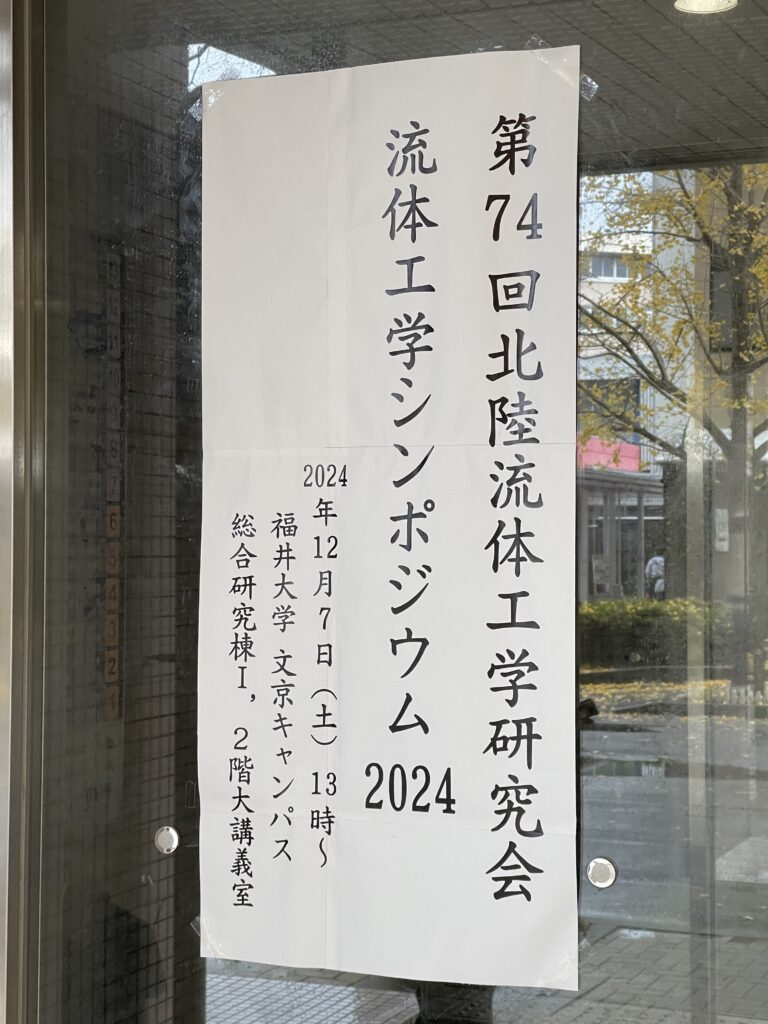 第74回北陸流体工学研究会
流体工学シンポジウム2024
2024年12月7日（土）13時～
福井大学 文京キャンパス
総合研究棟Ⅰ，2階大講義室
6
5
4
3
2
1